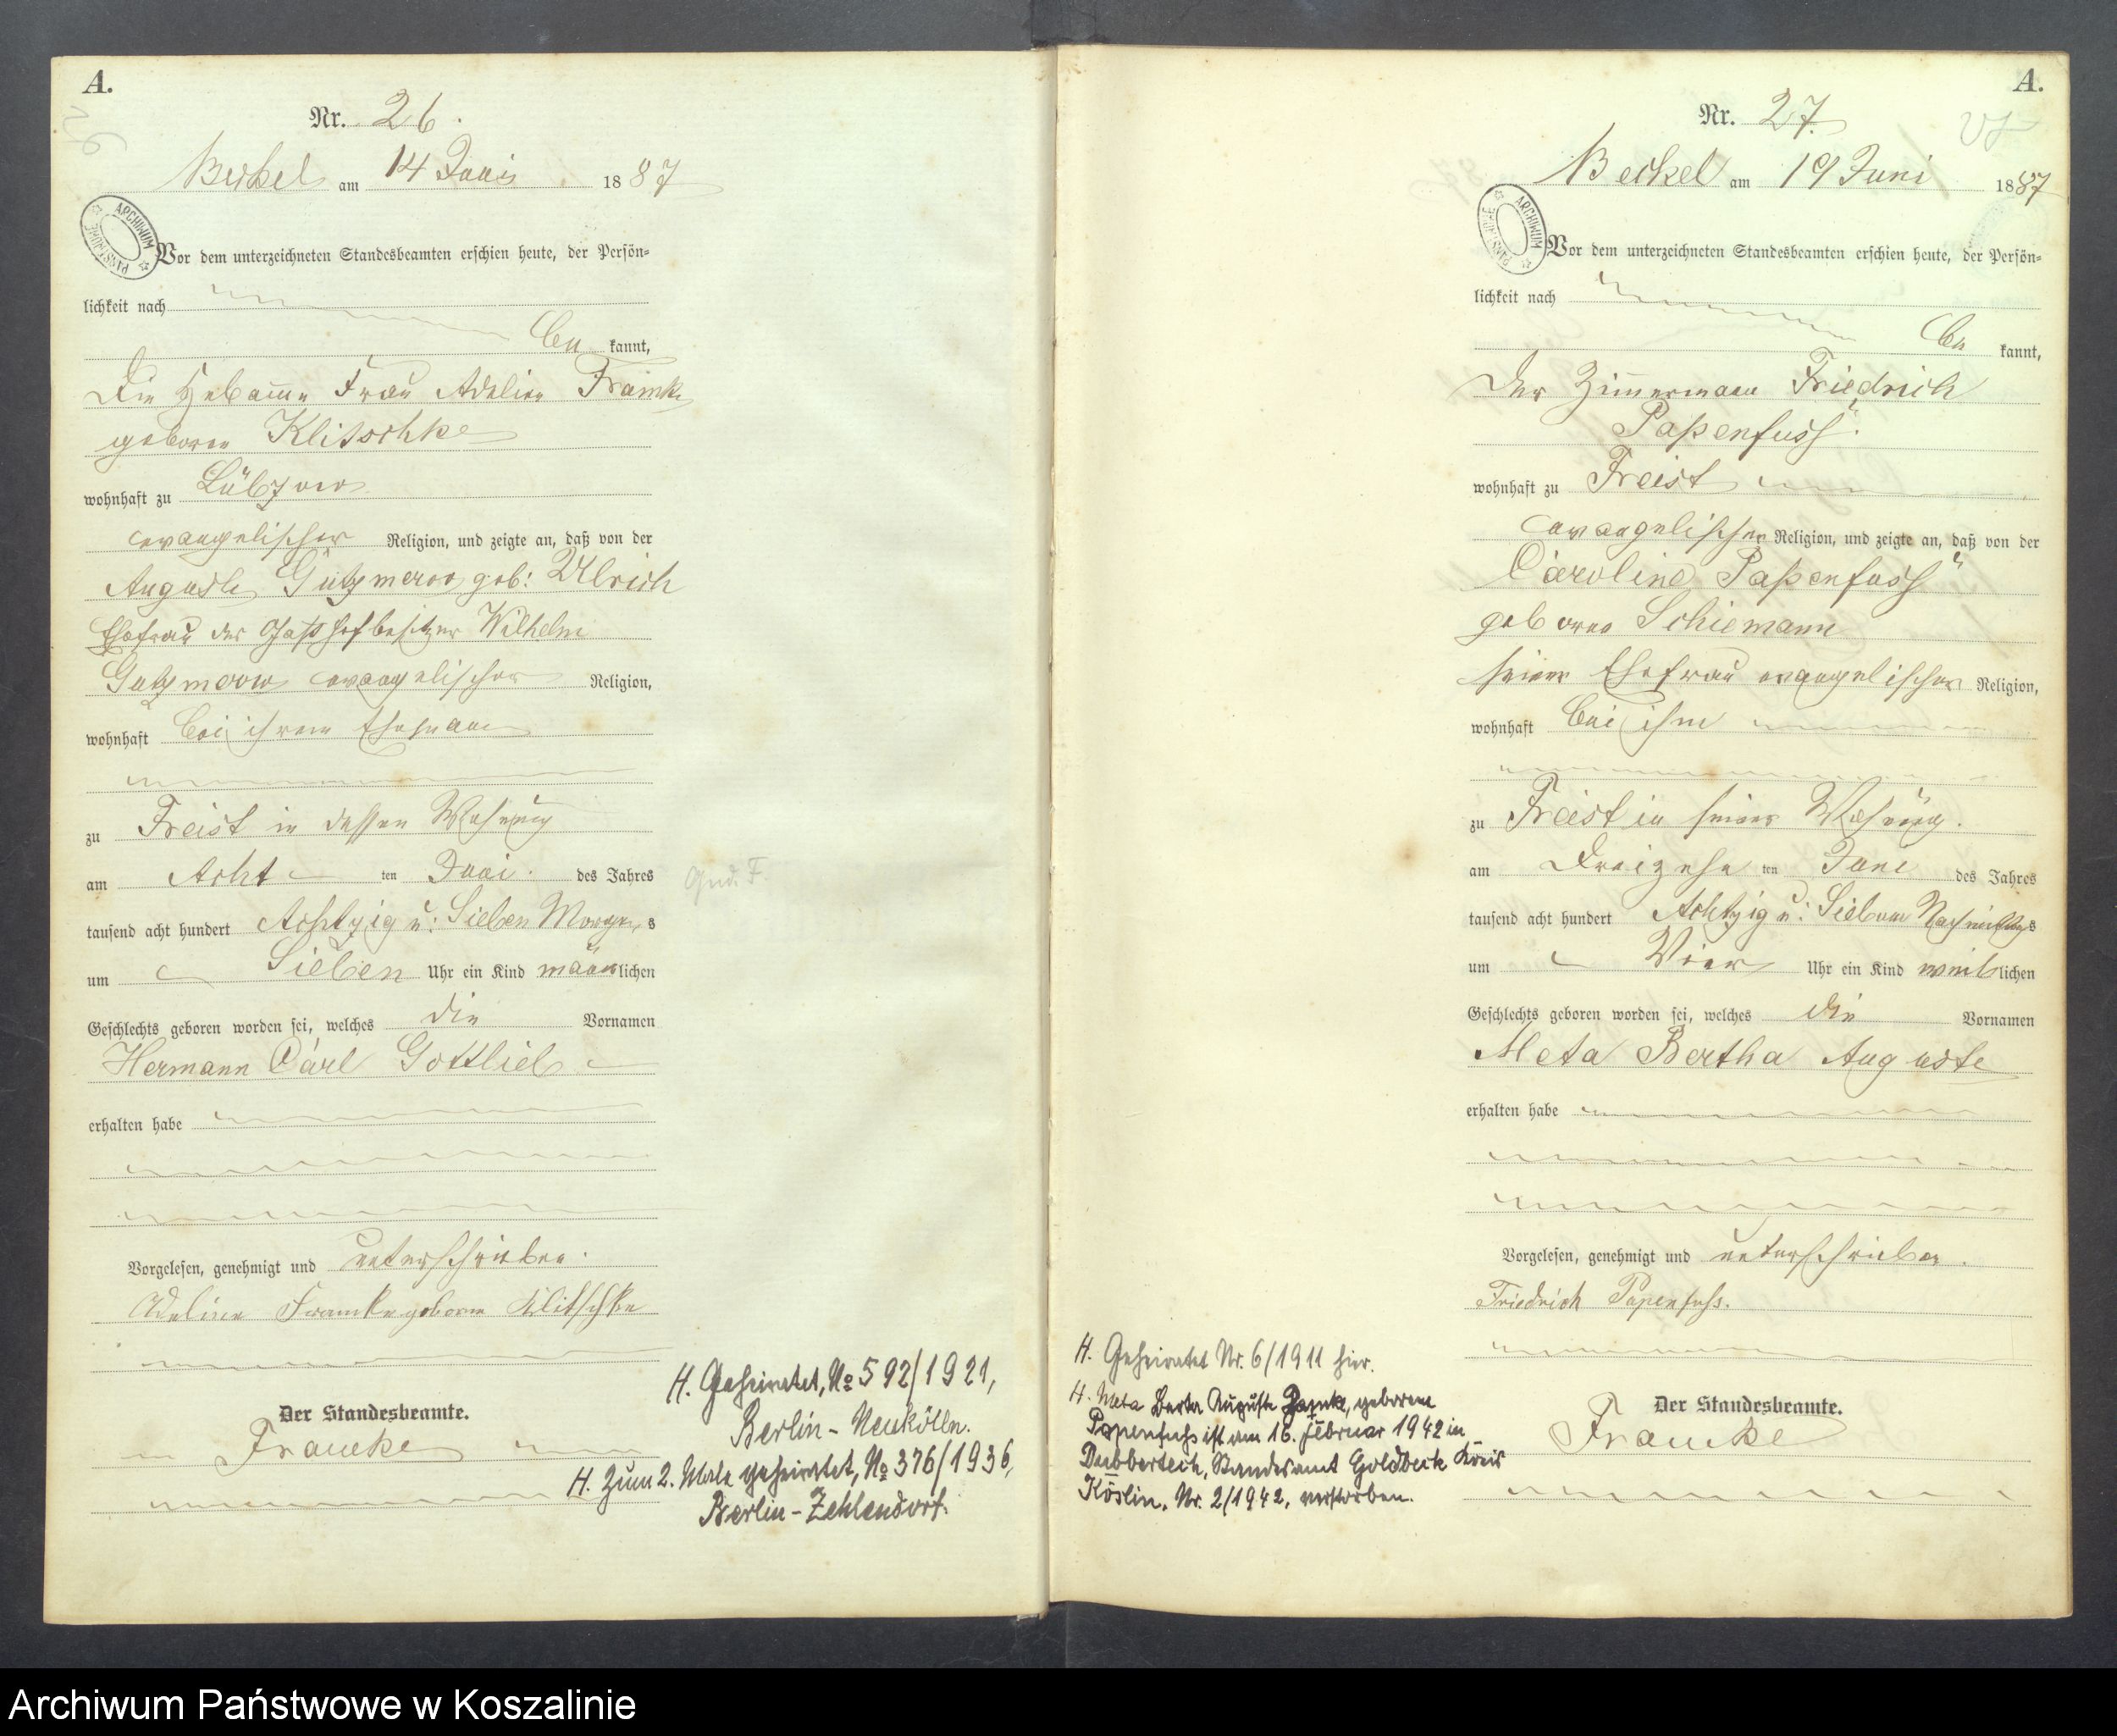 A.
Nr. 26.
Beckel am 14 Juni 1887
ARCHIWUM PAŃSTWOWE
Vor dem unterzeichneten Standesbeamten erschien heute, der Persön-
lichkeit nach
be kannt,
Die Hebamme Frau Adeline Framke
geboren Klitschke
wohnhaft zu Lübzow
evangelischer Religion, und zeigte an, daß von der
Auguste Gutzmerow geb: Ulrich
Ehefrau des Gasthofbesitzer Wilhelm
Gutzmerow evangelischer Religion,
wohnhaft bei ihrem Ehemann
zu Freist in dessen Wohnung
am Acht ten Juni des Jahres
Gnd. F.
tausend acht hundert Achtzig u: Sieben Morgens
um Sieben Uhr ein Kind männlichen
Geschlechts geboren worden sei, welches die Vornamen
Hermann Carl Gottlieb
erhalten habe
Vorgelesen, genehmigt und unterschrieben.
Adeline Framke geborene Klitschke
Der Standesbeamte.
Francke
H. Geheiratet, No 592/1921,
Berlin-Neukölln.
H. Zum 2. Male geheiratet, No 376/1936,
Berlin-Zehlendorf.
A.
Nr. 27.
Beckel am 19 Juni 1887
ARCHIWUM PAŃSTWOWE
Vor dem unterzeichneten Standesbeamten erschien heute, der Persön-
lichkeit nach
be kannt,
Der Zimmermann Friedrich
Papenfuss
wohnhaft zu Freist
evangelischer Religion, und zeigte an, daß von der
Caroline Papenfuss
geborne Schiemann
seiner Ehefrau evangelischer Religion,
wohnhaft bei ihm
zu Freist in seiner Wohnung.
am Dreizehn ten Juni des Jahres
tausend acht hundert Achtzig u: Sieben Nachmittags
um Vier Uhr ein Kind weiblichen
Geschlechts geboren worden sei, welches die Vornamen
Meta Bertha Auguste
erhalten habe
Vorgelesen, genehmigt und unterschrieben.
Friedrich Papenfuss.
Der Standesbeamte.
Francke
H. Geheiratet Nr. 6/1911 hier.
H. Meta Berta Auguste geborene
Papenfuss ist am 16. Februar 1942 in
Dubbertech, Standesamt Goldbeck Kreis
Köslin, Nr. 2/1942, verstorben.
Archiwum Państwowe w Koszalinie